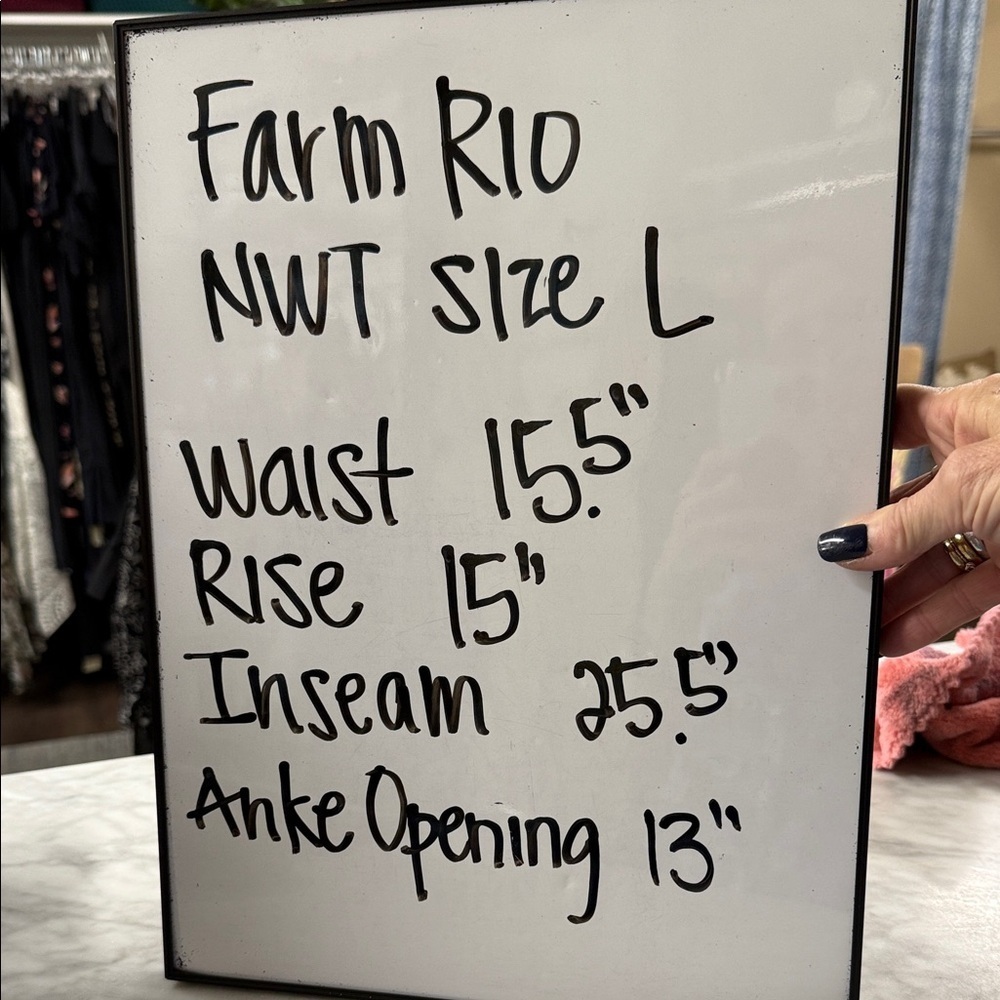 Farm RIO
NWT size L
Waist 15.5"
Rise 15"
Inseam 25.5"
Anke Opening 13"